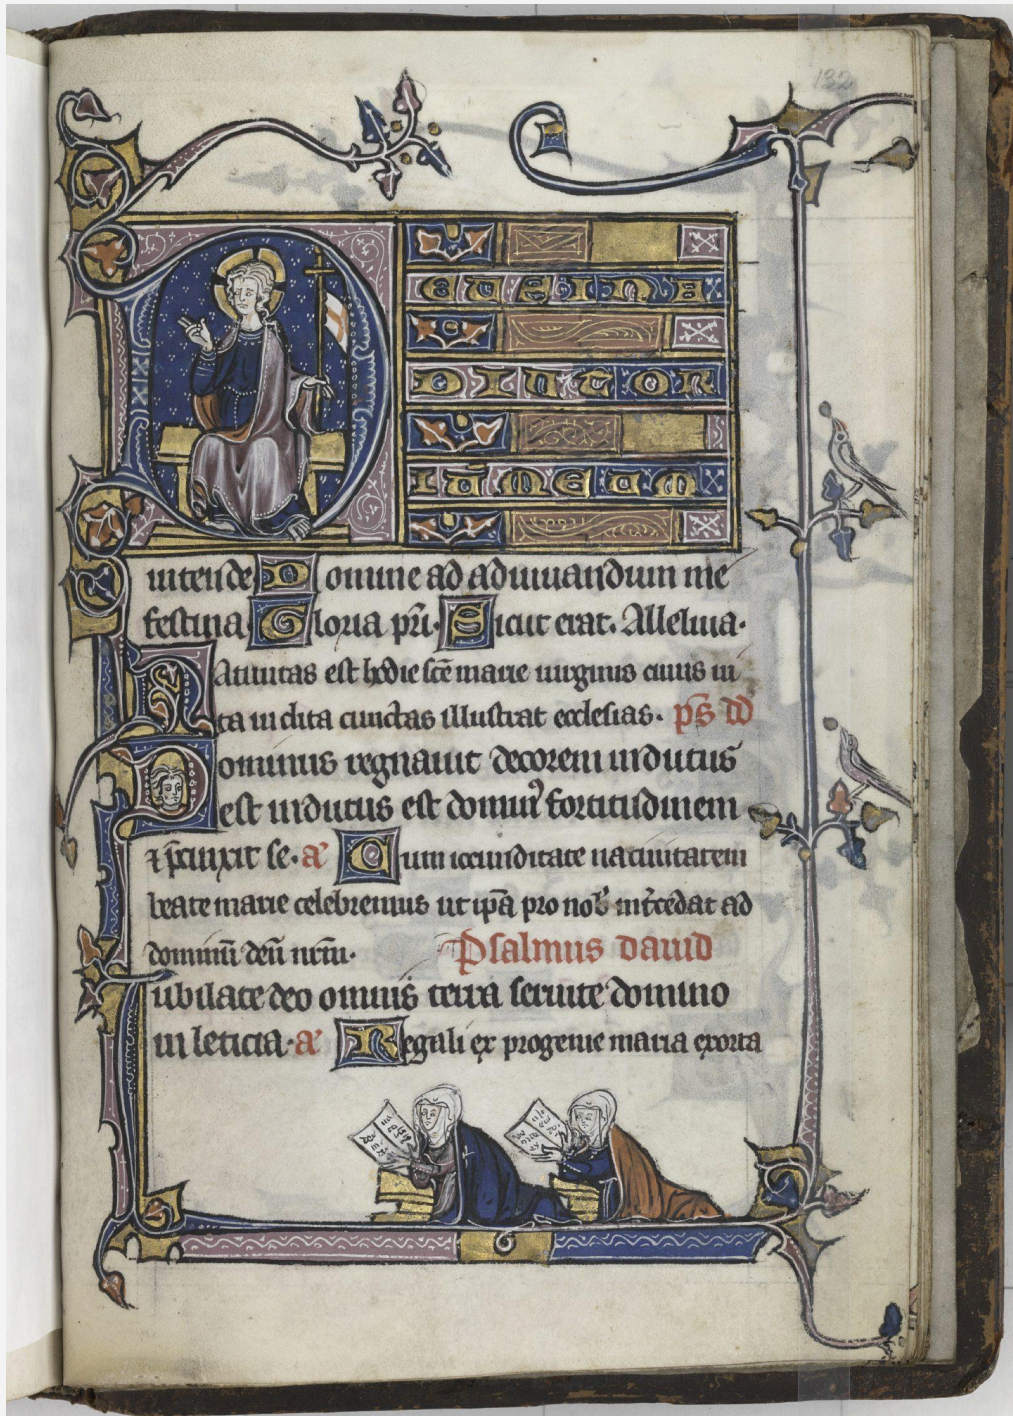 132
D
EUS IN A
DIUTOR
IŪ MEUM
intende Domine ad adiuuandum me
festina Gloria pr̄i. Sicut erat. Alleluia.
Natiuitas est hodie sc̄e marie uirginis cuius ui
ta inclita cunctas illustrat ecclesias. ps̄ dd
Dominus regnauit decorem indutus
est indutus est dominꝰ fortitudinem
⁊ p̄cinxit se. aᷓ Cum iocunditate natiuitatem
beate marie celebremus ut ip̄a pro nob̄ int̄cedat ad
dominū deū nr̄m. Psalmus dauid
iubilate deo omnis terra seruite domino
in leticia. aᷓ Regali ex progenie maria exorta